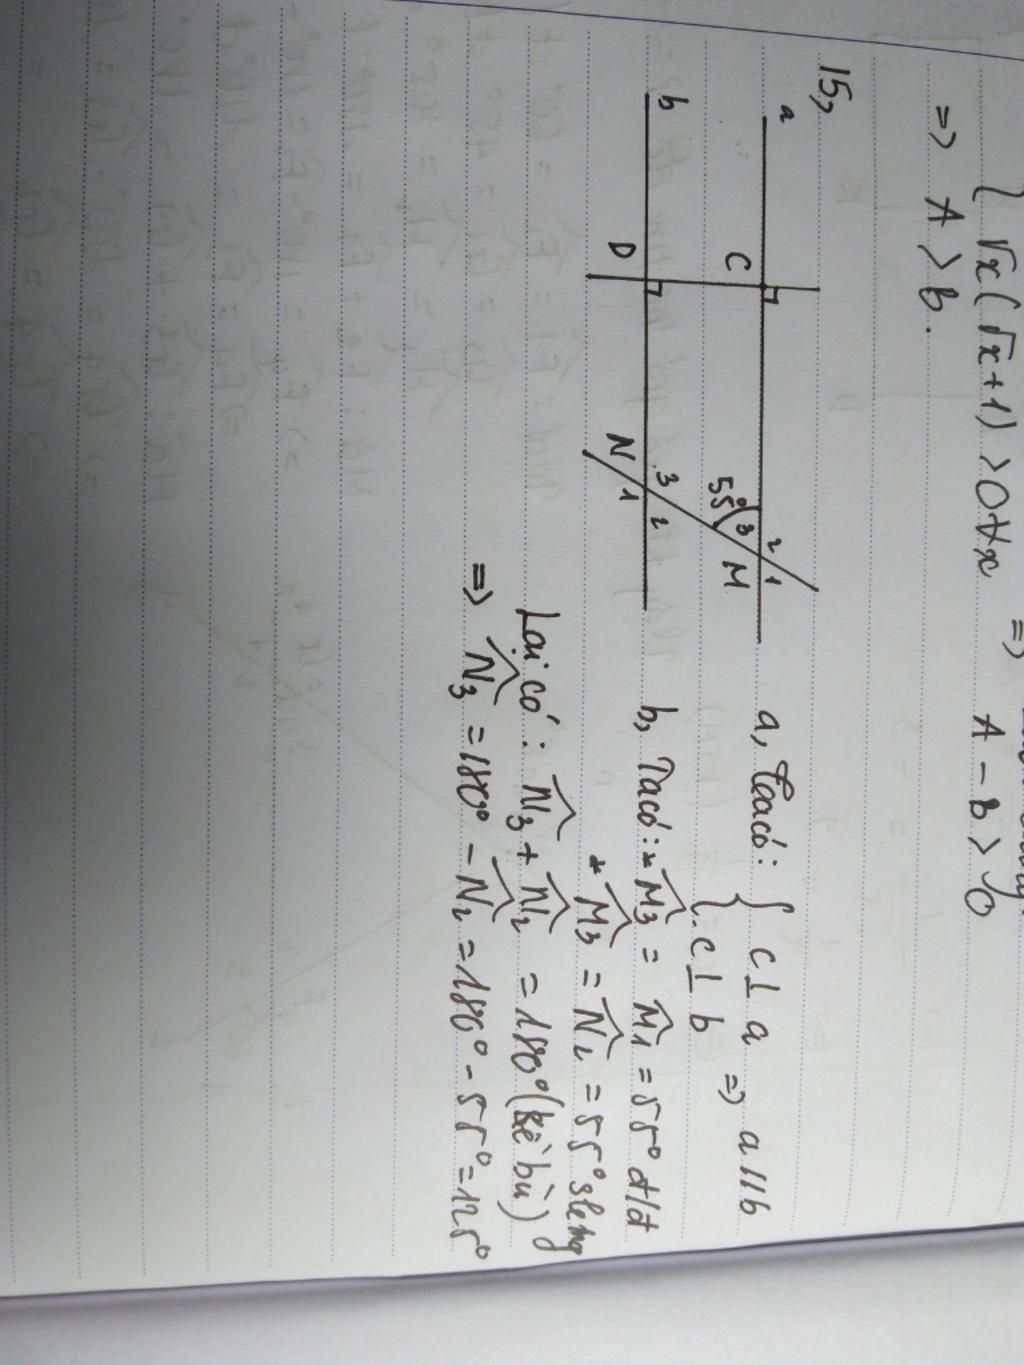 √x(√x+1) >0 ∀x =>
A - b > 0
=> A > b.
15,
a
C
2 1
3
55° M
b
D
3 2
N 1
a, Tacó: { c ⊥ a
c ⊥ b => a // b
b, Tacó: * M̂3 = M̂1 = 55° đ/đ
* M̂3 = N̂2 = 55°
Lại có: N̂3 + N̂2 = 180° (kề bù)
=> N̂3 = 180° - N̂2 = 180° - 55° = 125°